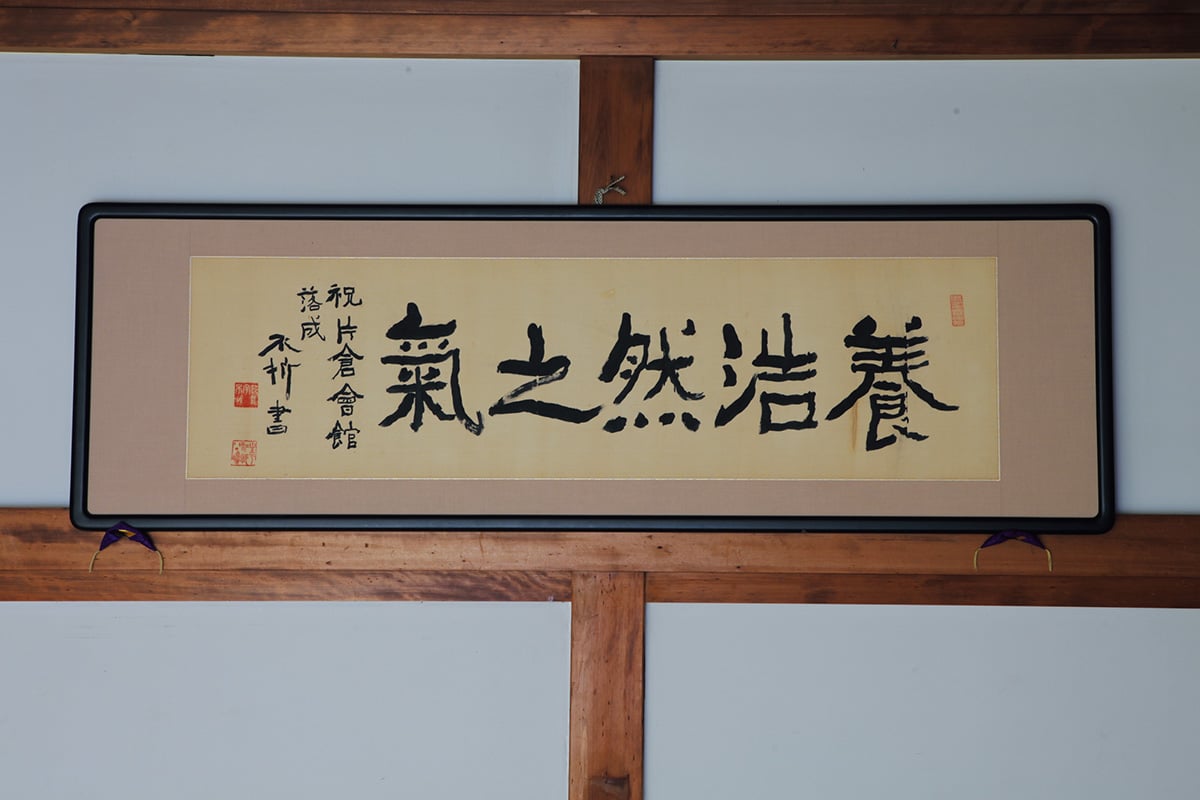 養浩然之氣
祝片倉會館
落成
書